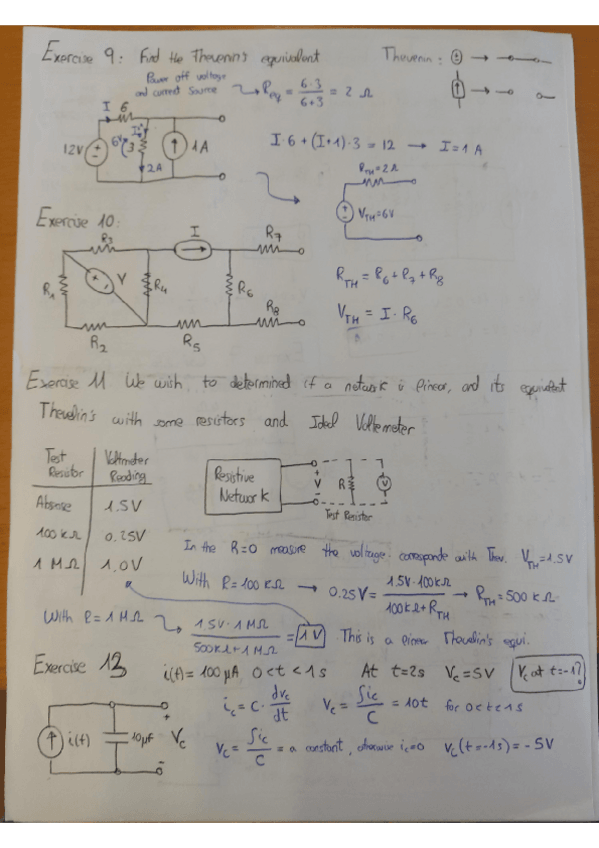 Exercise 9: Find the Thevenin's equivalent
Thevenin:
Power off voltage
and current source
Req = 6·3 / 6+3 = 2 Ω
I 6
12V 6V 3 1A
2A
I·6 + (I+1)·3 = 12 → I = 1 A
RTH = 2Ω
VTH = 6V
Exercise 10:
R3 I R7
R1 V R4 R6
R8
R2 R5
RTH = R6 + R7 + R8
VTH = I · R6
Exercise 11 We wish to determined if a network is linear, and its equivalent
Thevenin's with some resistors and Ideal Voltemeter
Test Resistor Voltmeter Reading
Absense 1.5V
100 kΩ 0.25V
1 MΩ 1.0V
Resistive Network
+ V - R V
Test Resistor
In the R=0 measure the voltage corresponde with Thev. VTH = 1.5V
With R = 100 kΩ → 0.25V = 1.5V·100kΩ / 100kΩ+RTH → RTH = 500 kΩ
With R = 1 MΩ → 1.5V · 1 MΩ / 500kΩ+1 MΩ = 1V This is a linear Thevelin's equi.
Exercise 13 i(t) = 100 μA 0<t<1s At t=2s Vc = 5V Vc at t=-1?
ic = C· dvc/dt Vc = ∫ic / C = 10t for 0<t<1s
i(t) 10μF + Vc -
Vc = ∫ic / C = a constant, otherwise ic=0 Vc(t=-1s) = -5V